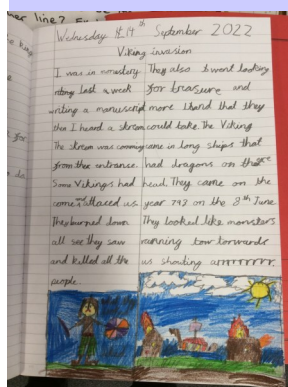 ner line?
Wednesday 14th September 2022
Viking invasion
I was in monastery
rotong last a week
writing a manuscript
then I heard a skream
The skream was cooming
from thee entrance.
Some Vikings had
come attaced us
They burned down
all see they saw
and killed all the
people.
They also went looking
for treasure and
more thand that they
could take. The Viking
came in long ships that
had dragons on there
head. They came on the
year 798 on the 8th June
They looked like monsters
running tow torwards
us shouting arrrrrrrr.